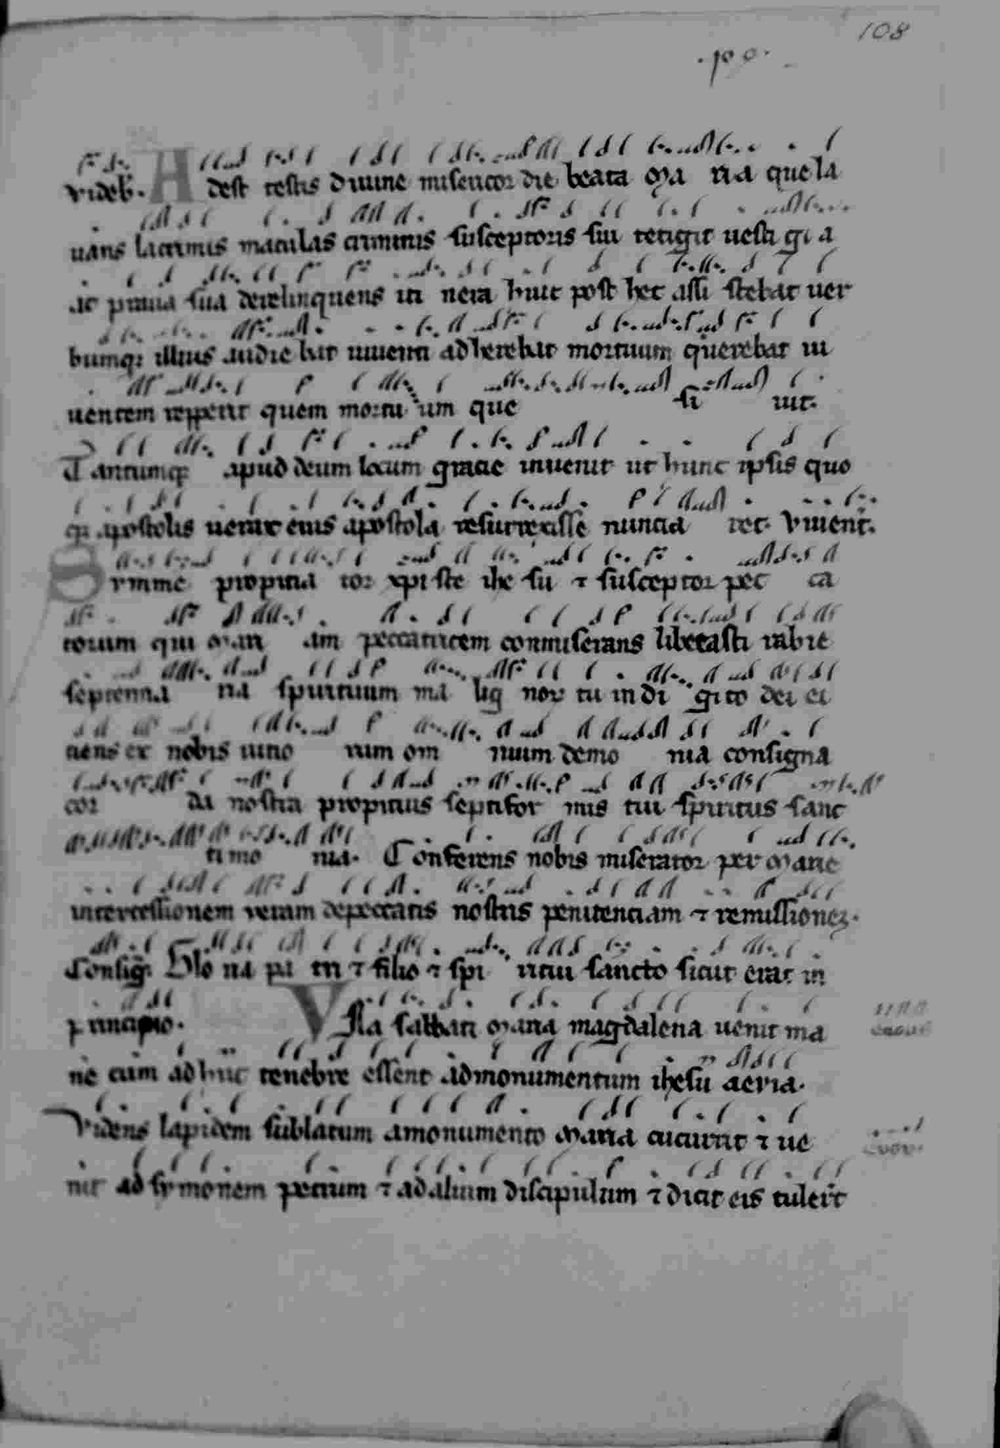 108
videb̄. Adest testis divine misericordie beata Maria que la
vans lacrimis maculas criminis susceptoris sui tetigit vestigia
ac prava sua derelinquens itinera huic post hec assistebat ver
bumq; illius audiebat viventi adherebat mortuum querebat vi
ventem repperit quem mortuum que sivit.
Tantumq; apud deum locum gratie invenit ut hunc ipsis quo
q; apostolis verax eius apostola resurrexisse nunciaret. Viventē.
Summe propinator xpiste ihesu ⁊ susceptor pecca
torum qui Mariam peccatricem commiserans liberasti rabie
septenna na spirituum malignorum tu in digito dei ei
ciens ex nobis universum omnium demonia consigna
corda nostra propitius septiformis tui spiritus sanc
timonia. Conferens nobis miserator per Marie
intercessionem veram de peccatis nostris penitenciam ⁊ remissionez.
Consiḡ. Gloria patri ⁊ filio ⁊ spiritui sancto sicut erat in
principio. Una sabbati Maria magdalena venit ma
ne cum adhuc tenebre essent ad monumentum ihesu aevia.
Videns lapidem sublatum a monumento Maria cucurrit ⁊ ve
nit ad symonem petrum ⁊ ad alium discipulum ⁊ dicit eis tulert̄